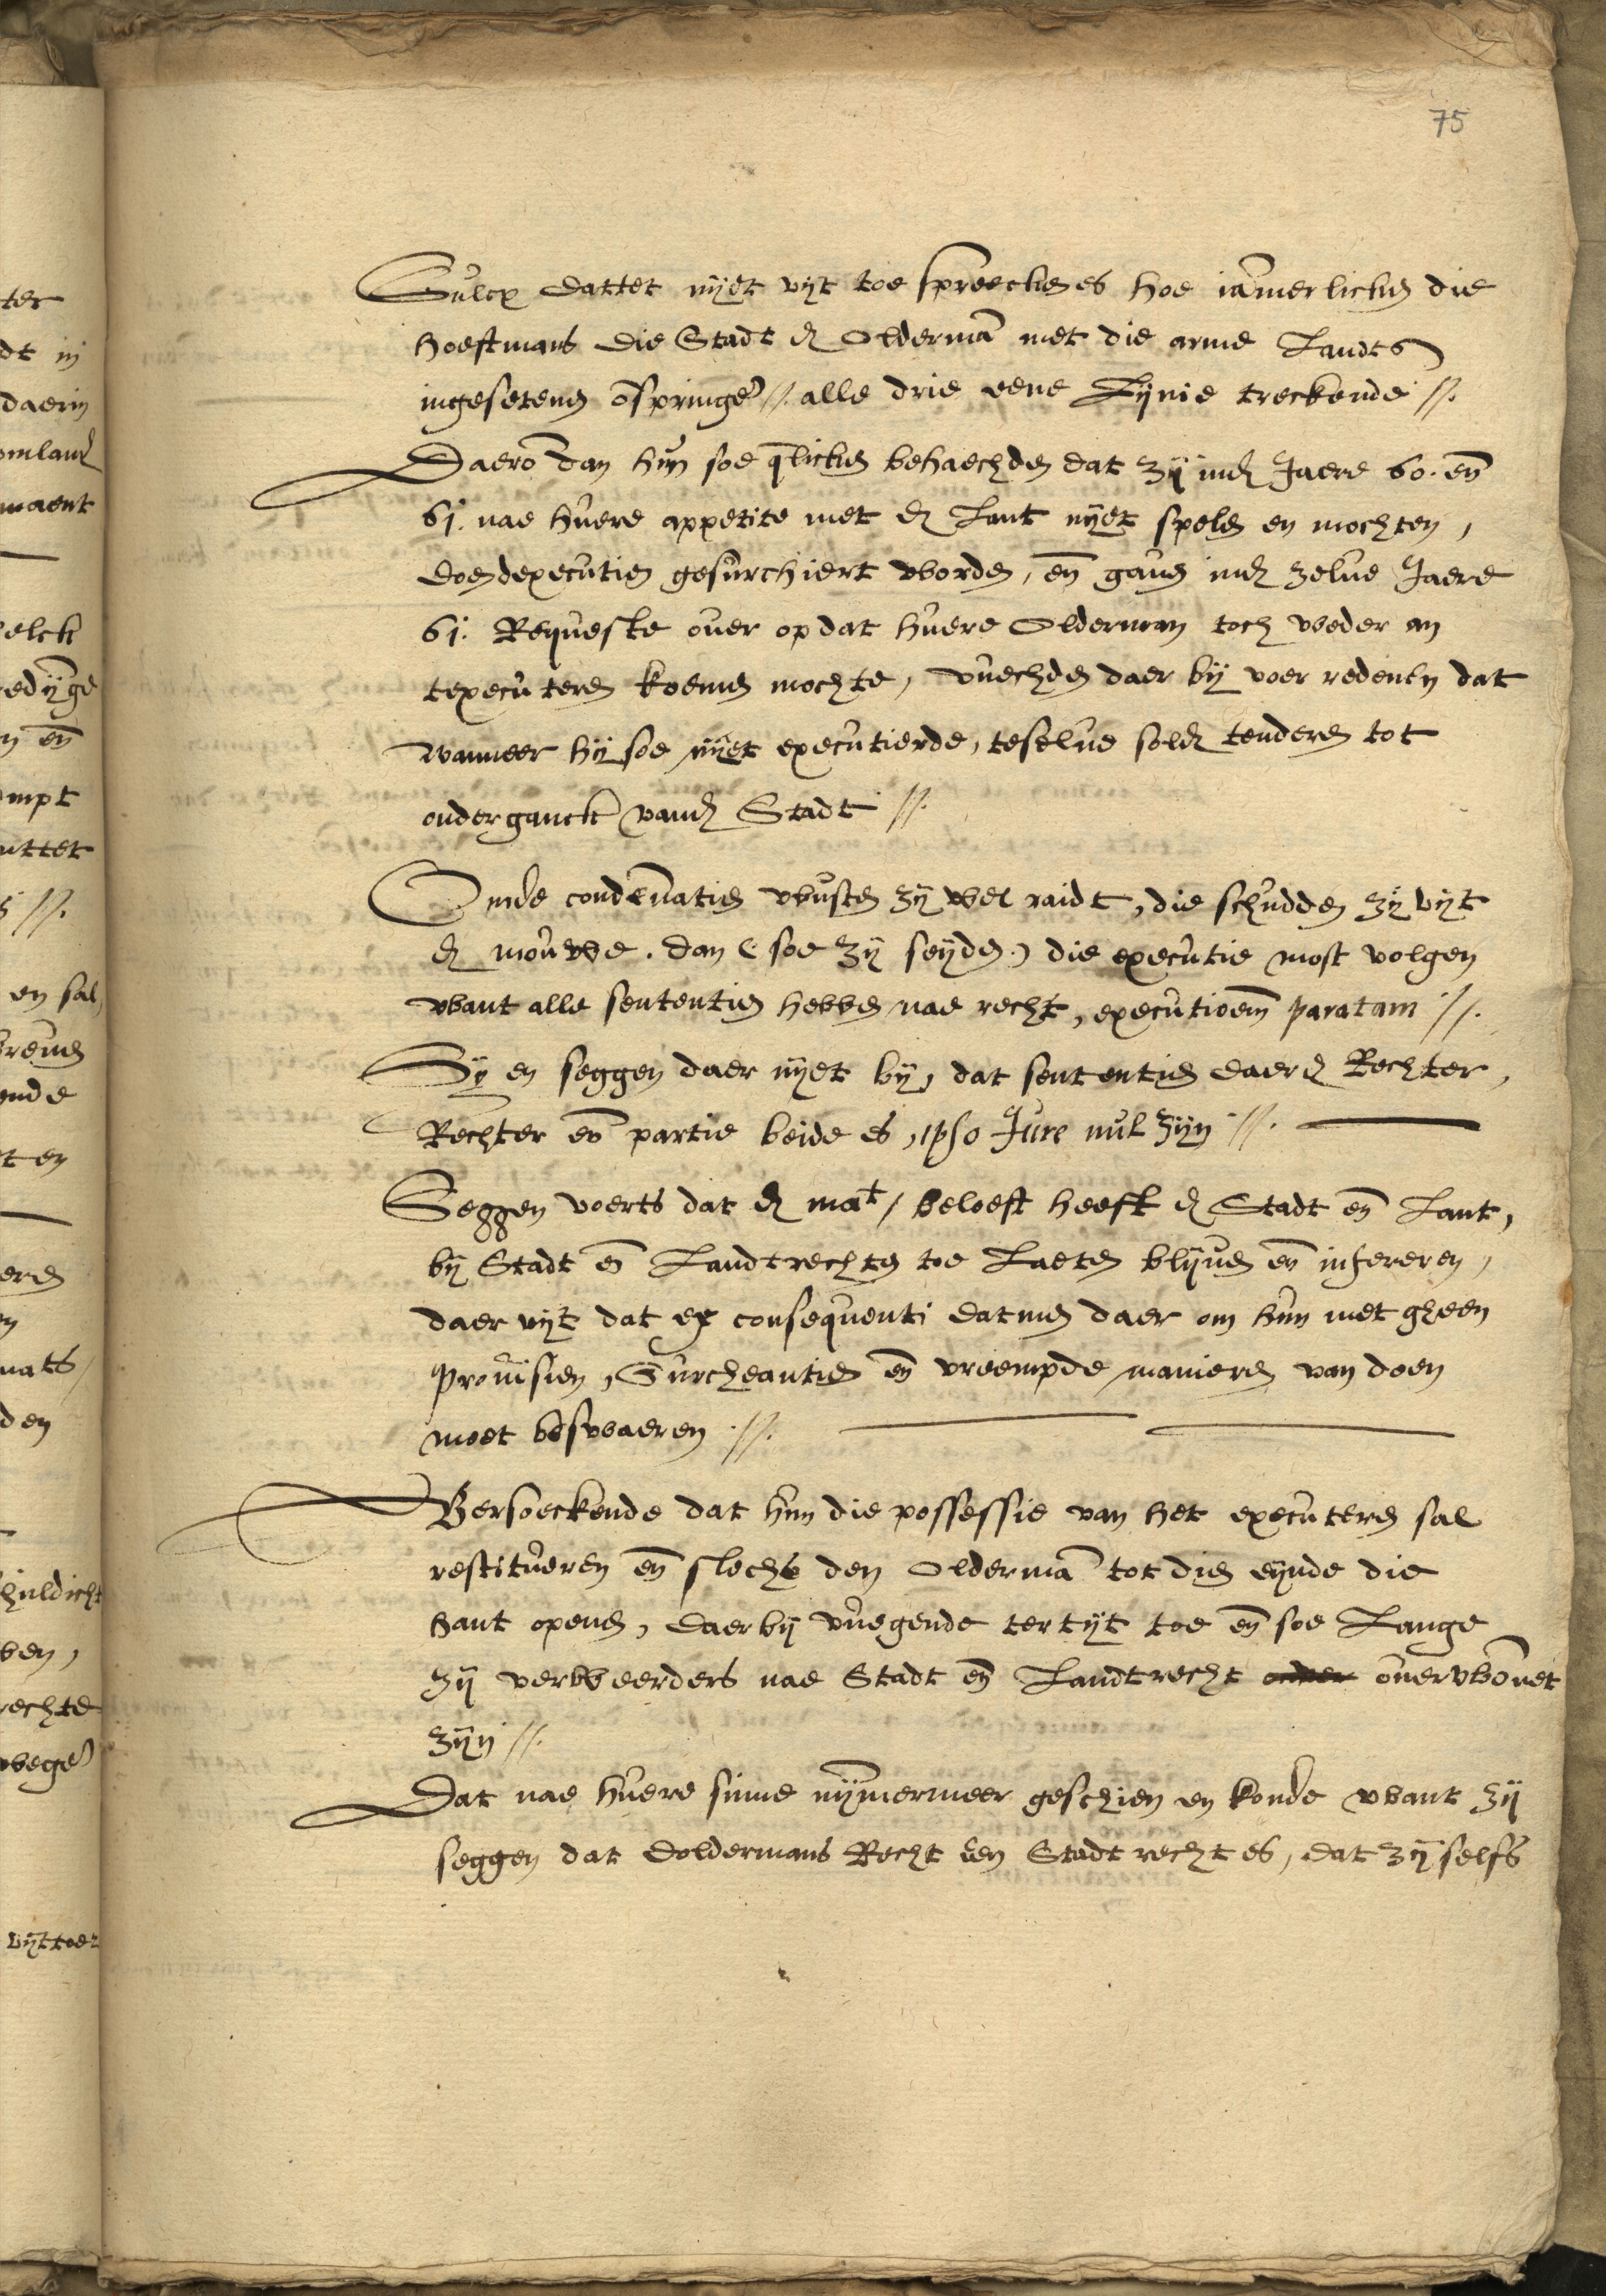 75
Sulcx dattet nyet uyt toe spreecken es hoe iāmerlicken die
hoeftmans die Stadt en̄ Oldermā met die arme Landts
ingeseten omspringen //. alle drie eene Lynie treckende //.
Daerō dan hun soe qlicken behaechden dat zy inden Jaere 60. en̄
61. nae huere appetite met den Lant nyet spelen en mochten,
doen dexecutien gesurchiert worden, en̄ gauen inden zelue Jaere
61. Requeste ouer op dat huere Olderman toch weder an
texecuteren koemen mochte, vuechden daer by voer redenen dat
wanneer hy soe nyet executierde, teselue solde tenderen tot
onderganck vande Stadt //.
Omde condēnatien wusten zy wel raidt, die schudden zy uyt
de mouwe. dan (soe zy seyden) die executie most volgen
want alle sententien hebben nae recht, executioem̄ paratam //.
Sy en seggen daer nyet by, dat sententien daer de Rechter,
Rechter en̄ partie beide es, ipso Jure nul zyn //.
Seggen voerts dat de mat / beloeft heeft de Stadt en̄ Lant,
by Stadt en̄ Landtrechten toe Laeten blyuen en̄ infereren,
daer uyt dat ex consequenti datmen daer om hun met gheen
Prouisien, Surcheantien en̄ vreempde manieren van doen
moet beswaeren //.
Versoeckende dat hun die possessie van het executeren sal
restitueren en̄ slechs den Oldermā tot dien eynde die
hant openen, daer by vuegende tertyt toe en̄ soe Lange
zy verweerders nae Stadt en̄ Landtrecht ouerwonnet
zyn //.
Dat nae huere sinne nymmermeer geschien en konde want zy
seggen dat doldermans Recht een Stadtrecht es, dat zy selfs